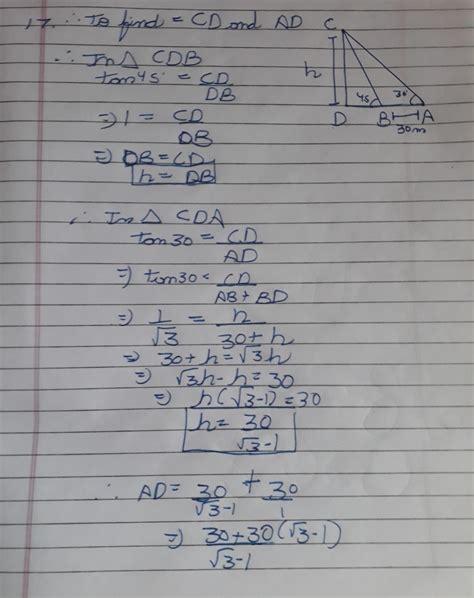 17. ∴ To find = CD and AD
∴ In △ CDB
tan45 = CD/DB
⇒ 1 = CD/DB
⇒ DB = CD
h = DB
C
h
45 30
D B A
30m
∴ In △ CDA
tan30 = CD/AD
⇒ tan30 = CD/AB + BD
⇒ 1/√3 = h/30 + h
⇒ 30 + h = √3h
⇒ √3h - h = 30
⇒ h(√3-1) = 30
h = 30/√3-1
∴ AD = 30/√3-1 + 30/1
⇒ 30+30(√3-1)/√3-1